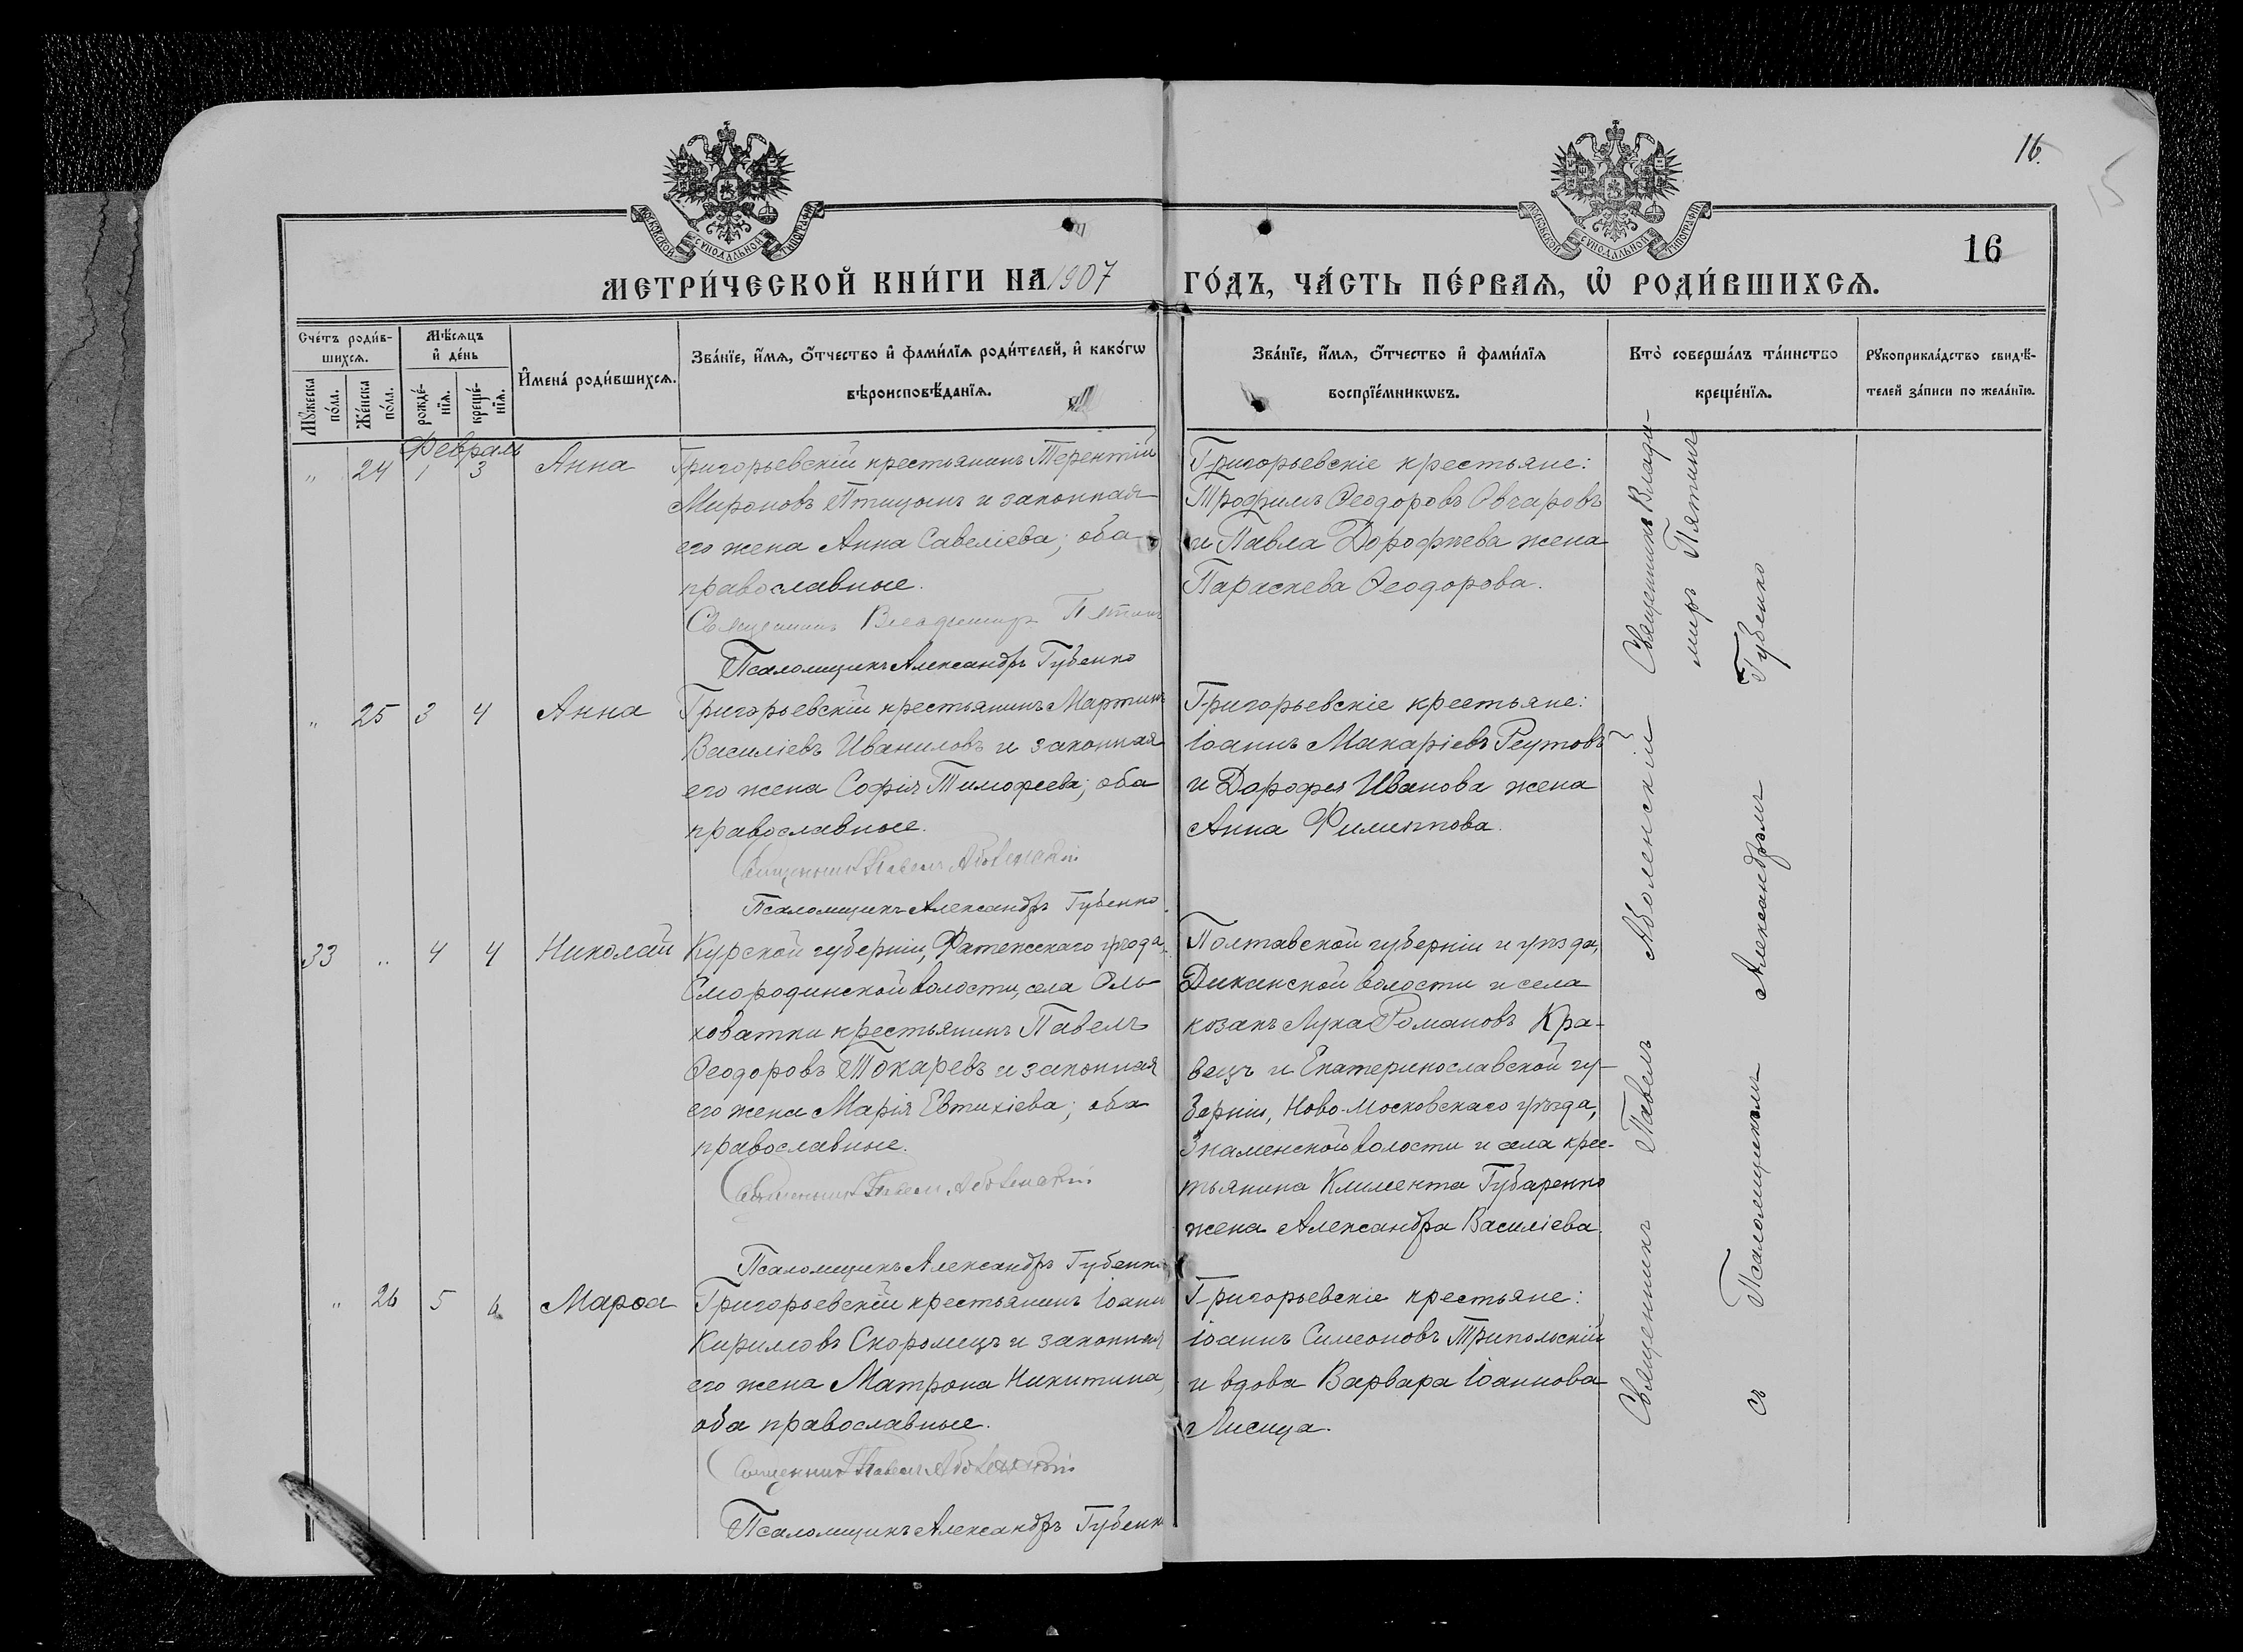 16.
15
МОСКОВСКОЙ СУНОДАЛЬНОЙ ТИПОГРАФІИ
МОСКОВСКОЙ СУНОДАЛЬНОЙ ТИПОГРАФІИ
16
МЕТРИ́ЧЕСКОЙ КНИ́ГИ НА 1907 ГО́ДЪ, ЧА́СТЬ ПЕ́РВАѦ, Ѡ҆ РОДИ́ВШИХСѦ.
Сче́тъ роди́в-
шихсѧ.
Мꙋ́жеска по́ла.
Же́нска по́ла.
Мѣ́сѧцъ
и҆ де́нь
рожде́-
нїѧ.
креще́-
нїѧ.
И҆мена̀ роди́вшихсѧ.
Зва́нїе, и҆́мѧ, ѻ҆́тчество и҆ фами́лїѧ роди́телей, и҆ како́гѡ
вѣроисповѣ́данїѧ.
Зва́нїе, и҆́мѧ, ѻ҆́тчество и҆ фами́лїѧ
воспрїе́мникѡвъ.
Кто̀ соверша́лъ та́инство
креще́нїѧ.
Рꙋкоприкла́дство свидѣ́-
телей за́писи по жела́нїю.
Февраль
" 24 1 3 Анна
Григорьевскій крестьянинъ Терентій
Мироновъ Птицынъ и законная
его жена Анна Савеліева; оба
православные.
Священникъ Владимиръ Пятинъ
Псаломщикъ Александръ Губенко
Григорьевскіе крестьяне:
Трофимъ Ѳеодоровъ Овчаровъ
и Павла Дорофѣева жена
Параскева Ѳеодорова.
" 25 3 4 Анна
Григорьевскій крестьянинъ Мартинъ
Василіевъ Иваниловъ и законная
его жена Софія Тимоѳеева; оба
православные.
Священникъ Павелъ Аболенскій
Псаломщикъ Александръ Губенко
Григорьевскіе крестьяне:
Іоаннъ Макаріевъ Реутовъ
и Дорофея Иванова жена
Анна Филиппова.
33 " 4 4 Николай
Курской губерніи, Фатежскаго уѣзда,
Смородинской волости, села Оль-
ховатки крестьянинъ Павелъ
Ѳеодоровъ Токаревъ и законная
его жена Марія Евтихіева; оба
православные.
Священникъ Павелъ Аболенскій
Псаломщикъ Александръ Губенко
Полтавской губерніи и уѣзда,
Диканской волости и села
козакъ Лука Романовъ Кра-
вецъ и Екатеринославской гу-
берніи, Ново-Московскаго уѣзда,
Знаменской волости и села крес-
тьянина Климента Губаренко
жена Александра Василіева.
" 26 5 6 Марѳа
Григорьевскій крестьянинъ Іоаннъ
Кирилловъ Скоромецъ и законная
его жена Матрона Никитина,
оба православные.
Священникъ Павелъ Аболенскій
Псаломщикъ Александръ Губенко
Григорьевскіе крестьяне:
Іоаннъ Симеоновъ Трипольскій
и вдова Варвара Іоаннова
Лисица.
Священникъ Павелъ Аболенскій Священникъ Влади-
миръ Пятинъ
съ Псаломщикомъ Александромъ Губенко